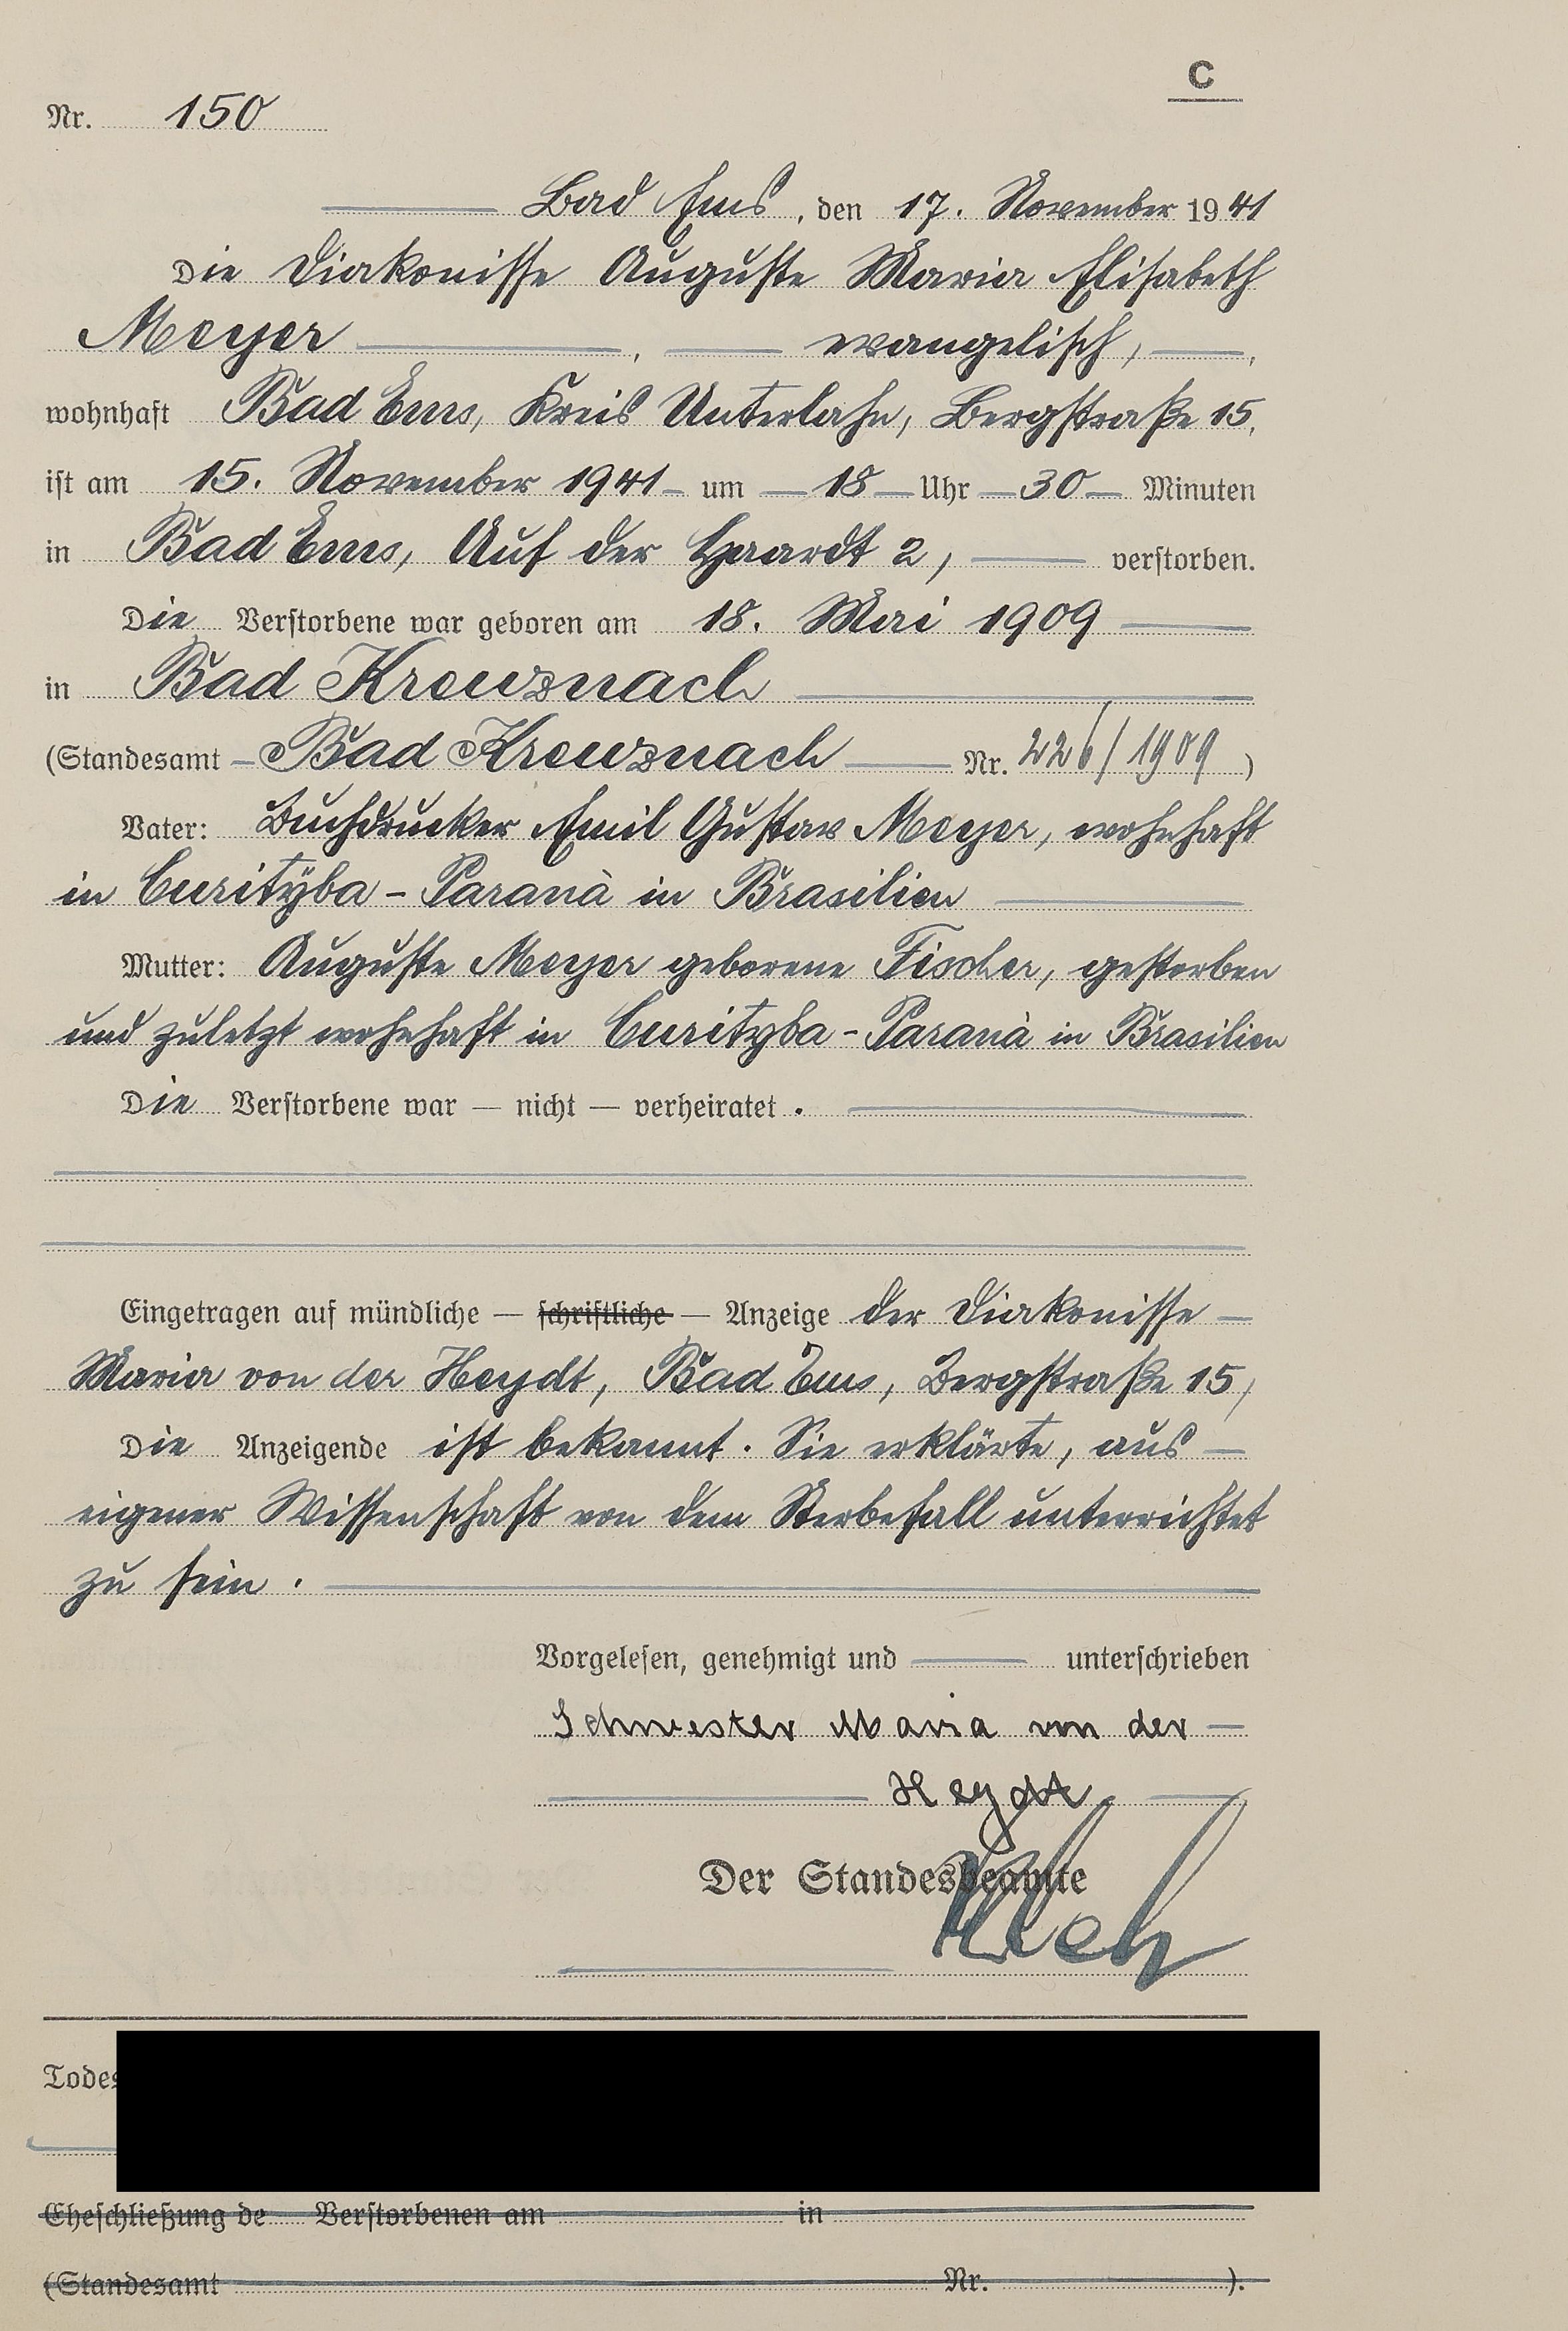 C
Nr. 150
Bad Ems, den 17. November 1941
Die Diakonisse Auguste Maria Elisabeth
Meyer, evangelisch,
wohnhaft Bad Ems, Kreis Unterlahn, Bergstraße 15,
ist am 15. November 1941 um 18 Uhr 30 Minuten
in Bad Ems, Auf der Haardt 2, verstorben.
Die Verstorbene war geboren am 18. Mai 1909
in Bad Kreuznach
(Standesamt Bad Kreuznach Nr. 226/1909)
Vater: Buchdrucker Emil Gustav Meyer, wohnhaft
in Curityba-Paranà in Brasilien
Mutter: Auguste Meyer geborene Fischer, gestorben
und zuletzt wohnhaft in Curityba-Paranà in Brasilien
Die Verstorbene war — nicht — verheiratet.
Eingetragen auf mündliche — schriftliche — Anzeige der Diakonisse
Maria von der Heydt, Bad Ems, Bergstraße 15,
Die Anzeigende ist bekannt. Sie erklärte, aus
eigener Wissenschaft von dem Sterbefall unterrichtet
zu sein.
Vorgelesen, genehmigt und unterschrieben
Schwester Maria von der
Heydt.
Der Standesbeamte
Todes
Eheschließung de Verstorbenen am in
(Standesamt Nr. ).